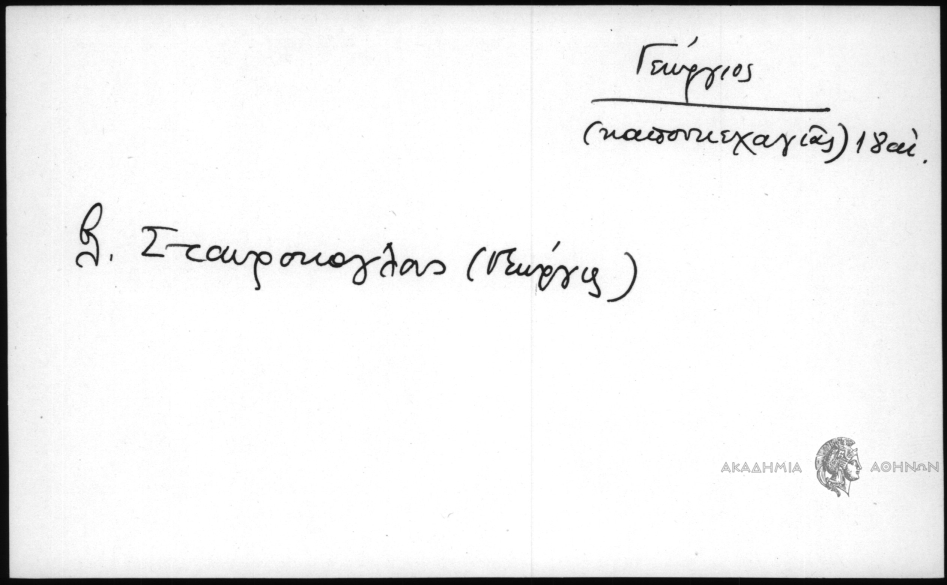 Γεώργιος
(καπουκεχαγιᾶς) 18 αἰ.
βλ. Σταυράκογλους (Γεώργις)
ΑΚΑΔΗΜΙΑ ΑΘΗΝΩΝ